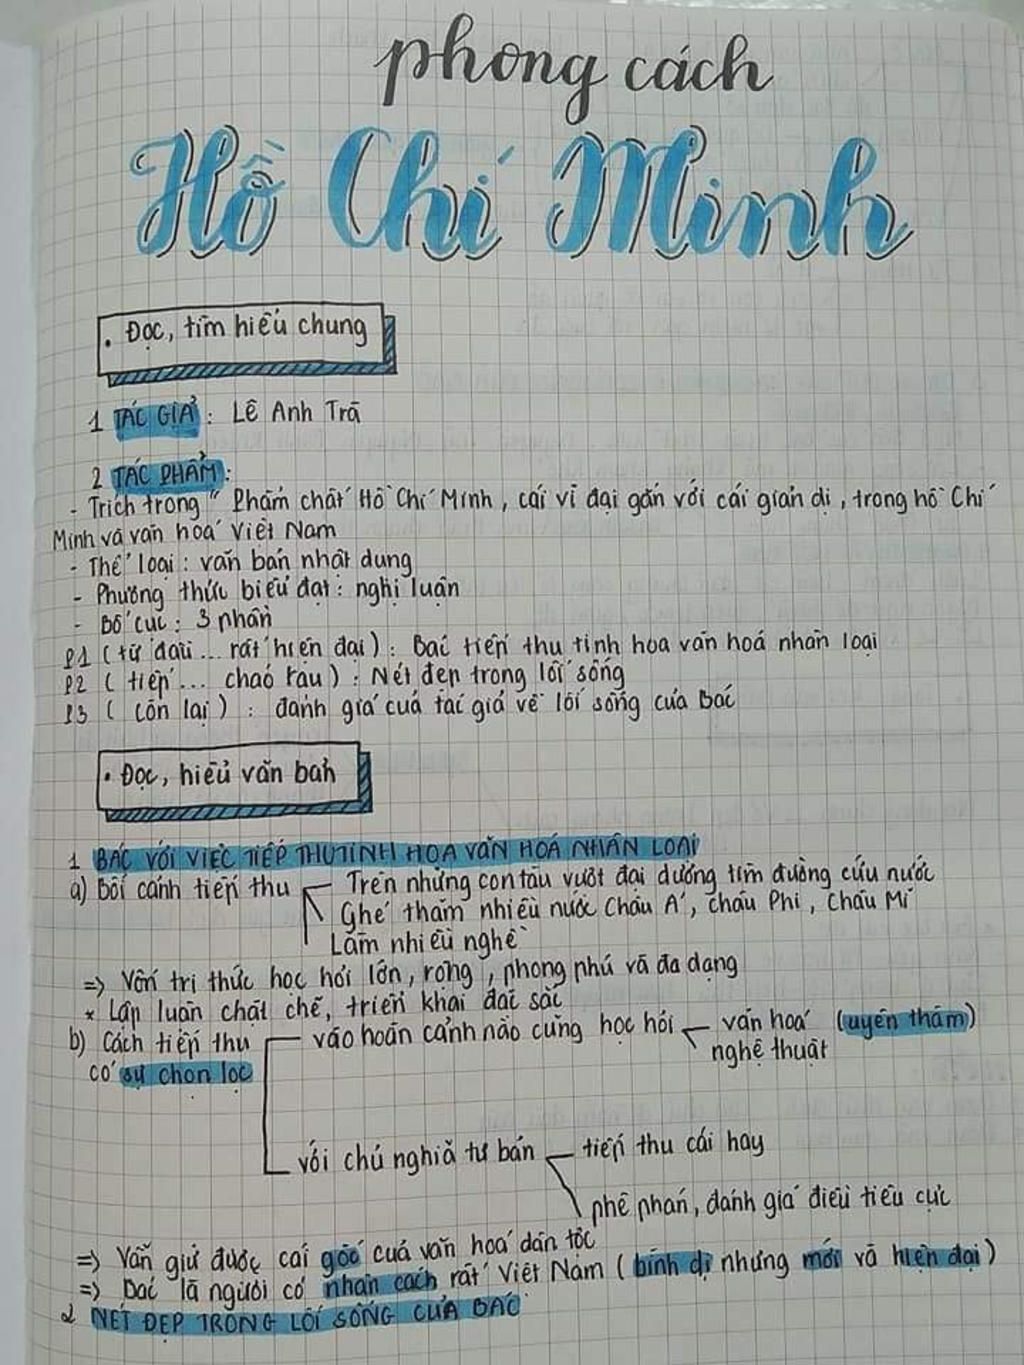 phong cách
Hồ Chí Minh
. Đọc, tìm hiểu chung
1 TÁC GIẢ : Lê Anh Trà
2 TÁC PHẨM :
- Trích trong " Phẩm chất Hồ Chí Minh, cái vĩ đại gắn với cái giản dị, trong hồ Chí
Minh và văn hoá Việt Nam
- Thể loại : văn bản nhật dụng
- Phương thức biểu đạt : nghị luận
- Bố cục : 3 phần
P1 ( từ đầu ... rất hiện đại ) : Bác tiếp thu tinh hoa văn hoá nhân loại
P2 ( tiếp ... chao tàu ) : Nét đẹp trong lối sống
P3 ( còn lại ) : đánh giá của tác giả về lối sống của Bác
. Đọc, hiểu văn bản
1 BÁC VỚI VIỆC TIẾP THU TINH HOA VĂN HOÁ NHÂN LOẠI
a) Bối cảnh tiếp thu Trên những con tàu vượt đại dương tìm đường cứu nước
Ghé thăm nhiều nước Châu Á, châu Phi, Châu Mĩ
Làm nhiều nghề
=> Vốn tri thức học hỏi lớn, rộng, phong phú và đa dạng
* Lập luận chặt chẽ, triển khai đặc sắc
b) Cách tiếp thu vào hoàn cảnh nào cũng học hỏi văn hoá (uyên thâm)
có sự chọn lọc nghệ thuật
với chủ nghĩa tư bản tiếp thu cái hay
phê phán, đánh giá điều tiêu cực
=> Vẫn giữ được cái gốc của văn hoá dân tộc
=> Bác là người có nhân cách rất Việt Nam ( bình dị nhưng mới và hiện đại )
2 NÉT ĐẸP TRONG LỐI SỐNG CỦA BÁC